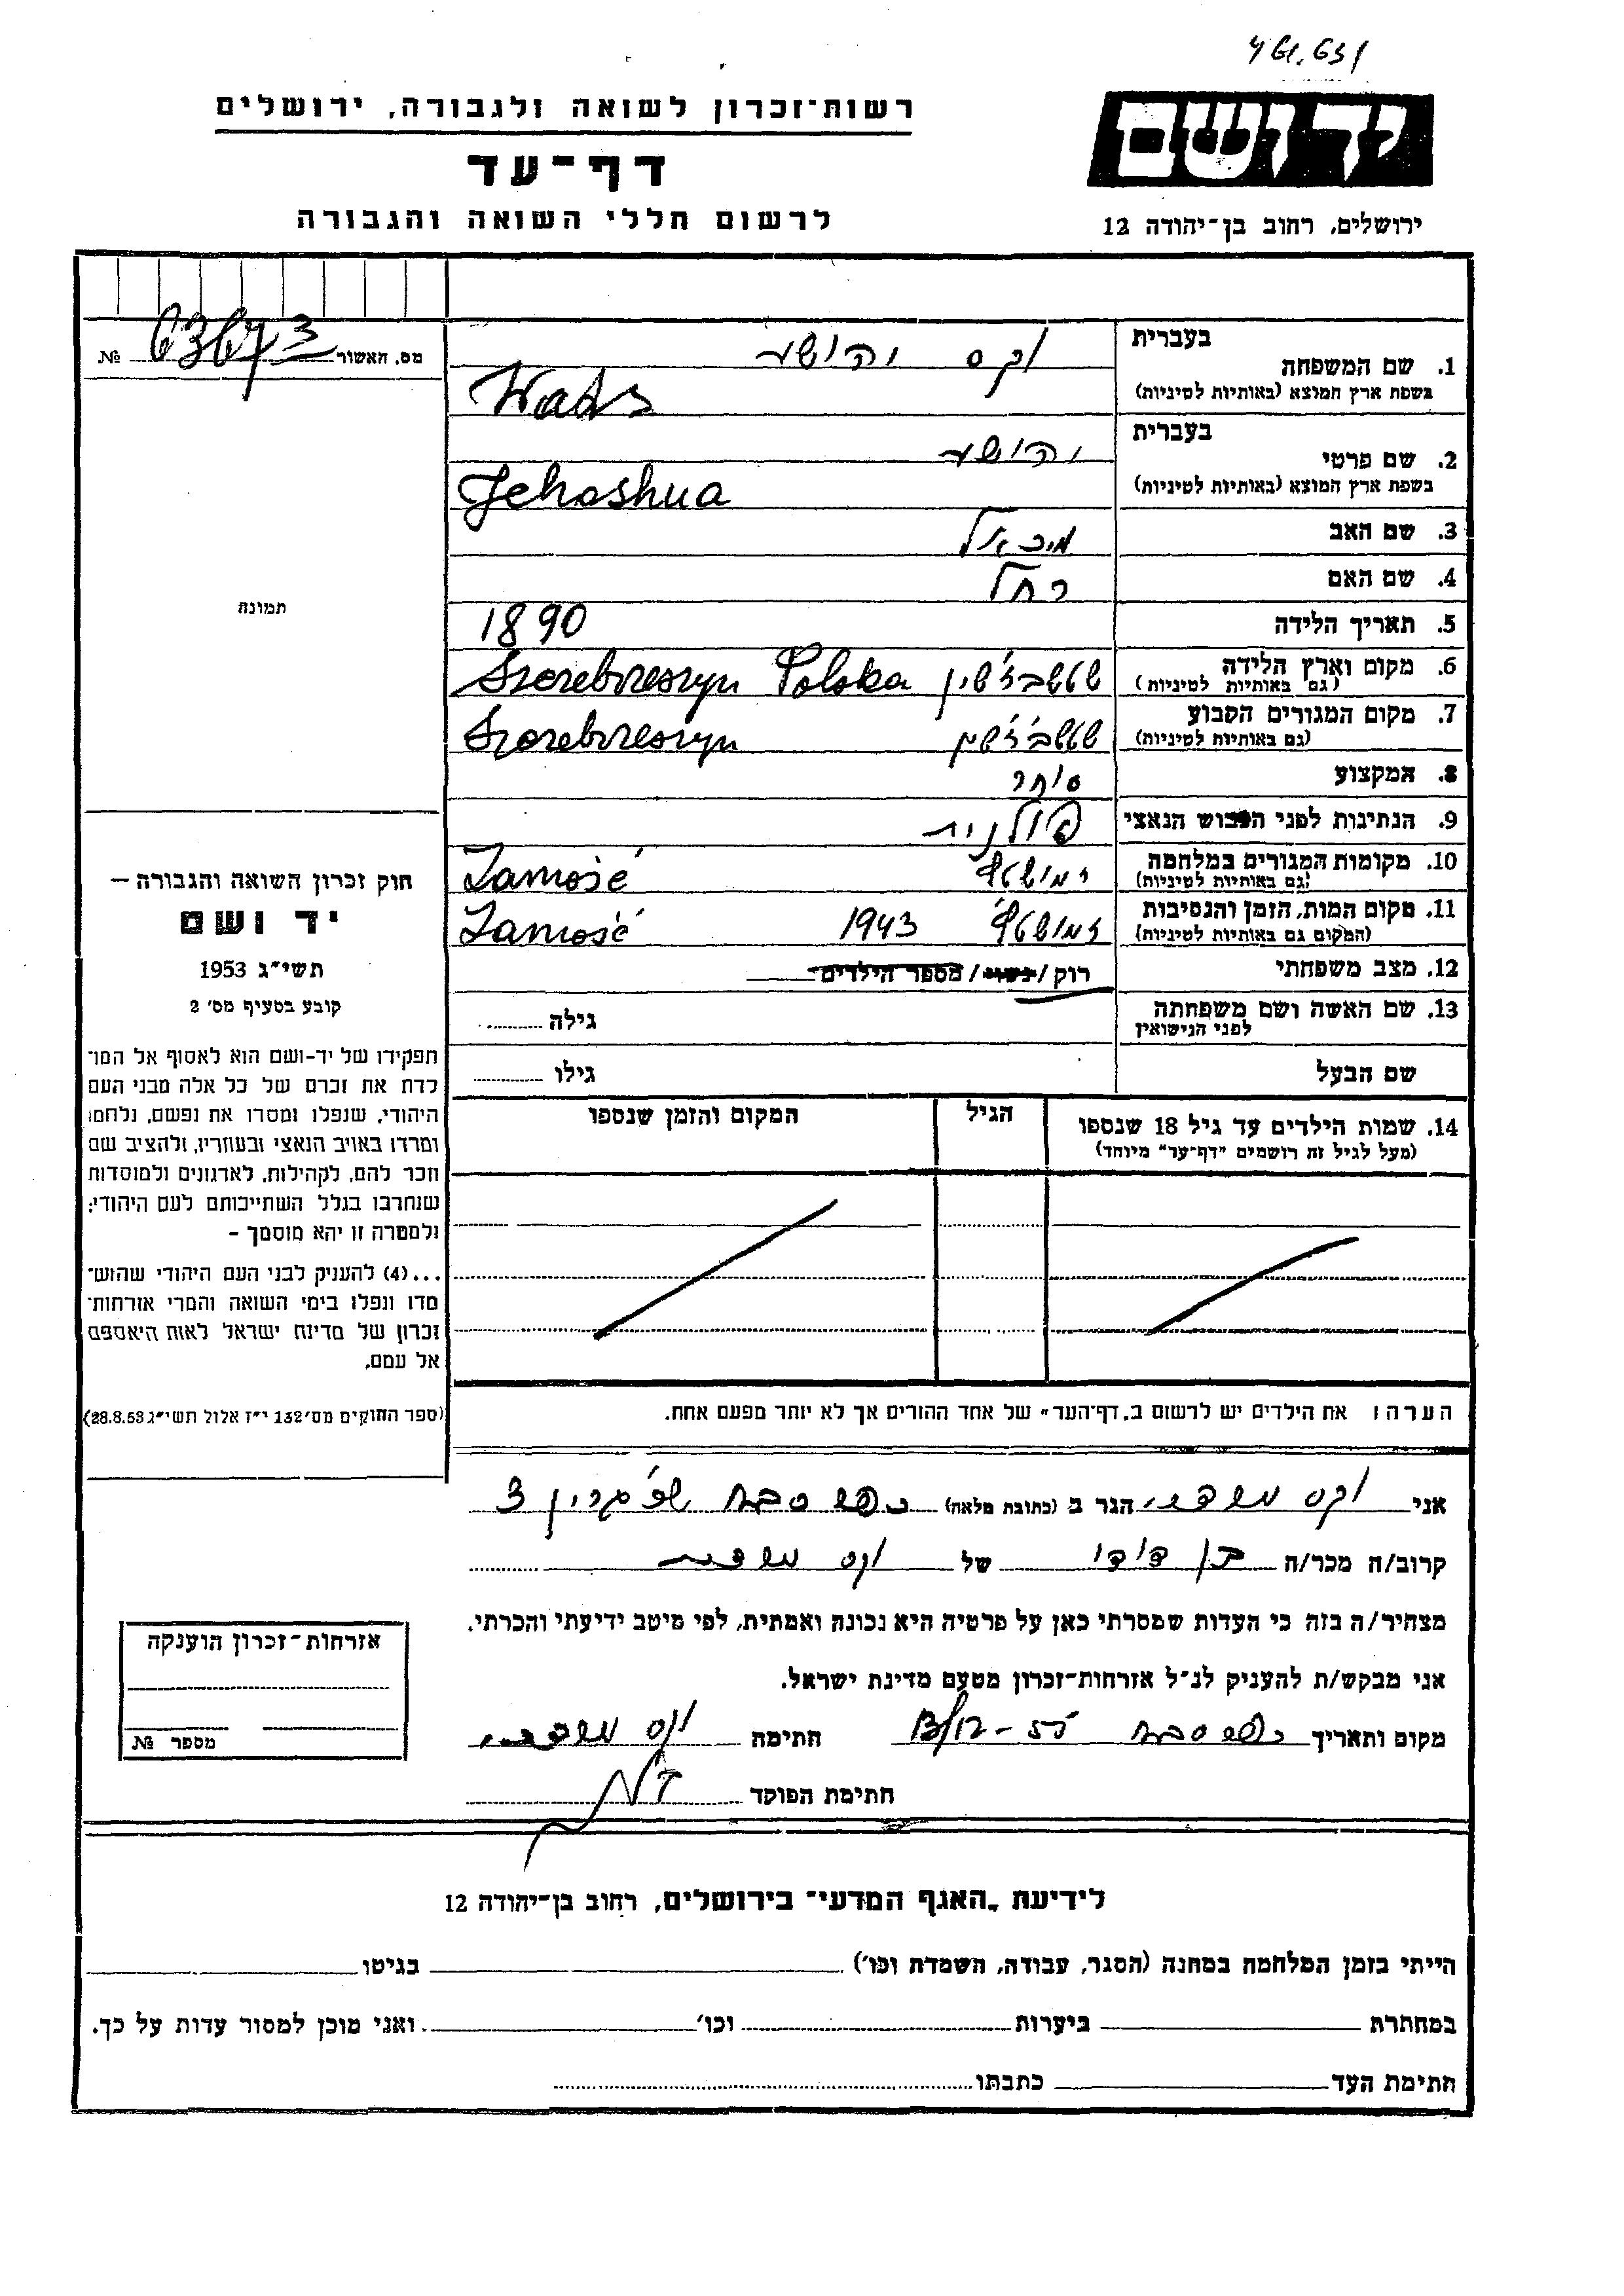 רשות־זכרון לשואה ולגבורה, ירושלים
דף־עד
לרשום חללי השואה והגבורה
יד ושם
ירושלים, רחוב בן־יהודה 12
מס. האשור №
1. שם המשפחה
בעברית וקס יהושע
בשפת ארץ המוצא (באותיות לטיניות) Waks
2. שם פרטי
בעברית יהושע
בשפת ארץ המוצא (באותיות לטיניות) Jehoshua
3. שם האב מיכאל
4. שם האם רחל
5. תאריך הלידה 1890
6. מקום וארץ הלידה
(גם באותיות לטיניות) Szczebrzeszyn Polska
7. מקום המגורים הקבוע
(גם באותיות לטיניות) Szczebrzeszyn
8. המקצוע סוחר
9. הנתינות לפני הכבוש הנאצי פולנית
10. מקומות המגורים במלחמה
(גם באותיות לטיניות) Zamość
11. מקום המות, הזמן והנסיבות
(המקום גם באותיות לטיניות) 1943 Zamość
12. מצב משפחתי רוק / נשוי / מספר הילדים
13. שם האשה ושם משפחתה
לפני הנישואין גילה
שם הבעל גילו
14. שמות הילדים עד גיל 18 שנספו
(מעל לגיל זה רושמים "דף־עד" מיוחד)
הגיל
המקום והזמן שנספו
הערה: את הילדים יש לרשום ב„דף־העד" של אחד ההורים אך לא יותר מפעם אחת.
תמונה
חוק זכרון השואה והגבורה —
יד ושם
תשי"ג 1953
קובע בסעיף מס' 2
תפקידו של יד-ושם הוא לאסוף אל המו־
לדת את זכרם של כל אלה מבני העם
היהודי, שנפלו ומסרו את נפשם, נלחמו
ומרדו באויב הנאצי ובעוזריו, ולהציב שם
וזכר להם, לקהילות, לארגונים ולמוסדות
שנחרבו בגלל השתייכותם לעם היהודי;
ולמטרה זו יהא מוסמך –
...(4) להעניק לבני העם היהודי שהוש־
מדו ונפלו בימי השואה והמרי אזרחות־
זכרון של מדינת ישראל לאות היאספם
אל עמם.
(ספר החוקים מס' 132 י"ז אלול תשי"ג 28.8.53)
אני וקס הגר ב (כתובת מלאה) 3
קרוב/ה מכר/ה בן דודו של וקס
מצהיר/ה בזה כי העדות שמסרתי כאן על פרטיה היא נכונה ואמתית, לפי מיטב ידיעתי והכרתי.
אני מבקש/ת להעניק לנ"ל אזרחות־זכרון מטעם מדינת ישראל.
מקום ותאריך חתימה וקס
חתימת הפוקד
אזרחות־זכרון הוענקה
מספר №
לידיעת „האגף המדעי" בירושלים, רחוב בן־יהודה 12
הייתי בזמן המלחמה במחנה (הסגר, עבודה, השמדת וכו') בגיטו
במחתרת ביערות וכו' ואני מוכן למסור עדות על כך.
חתימת העד כתבתו